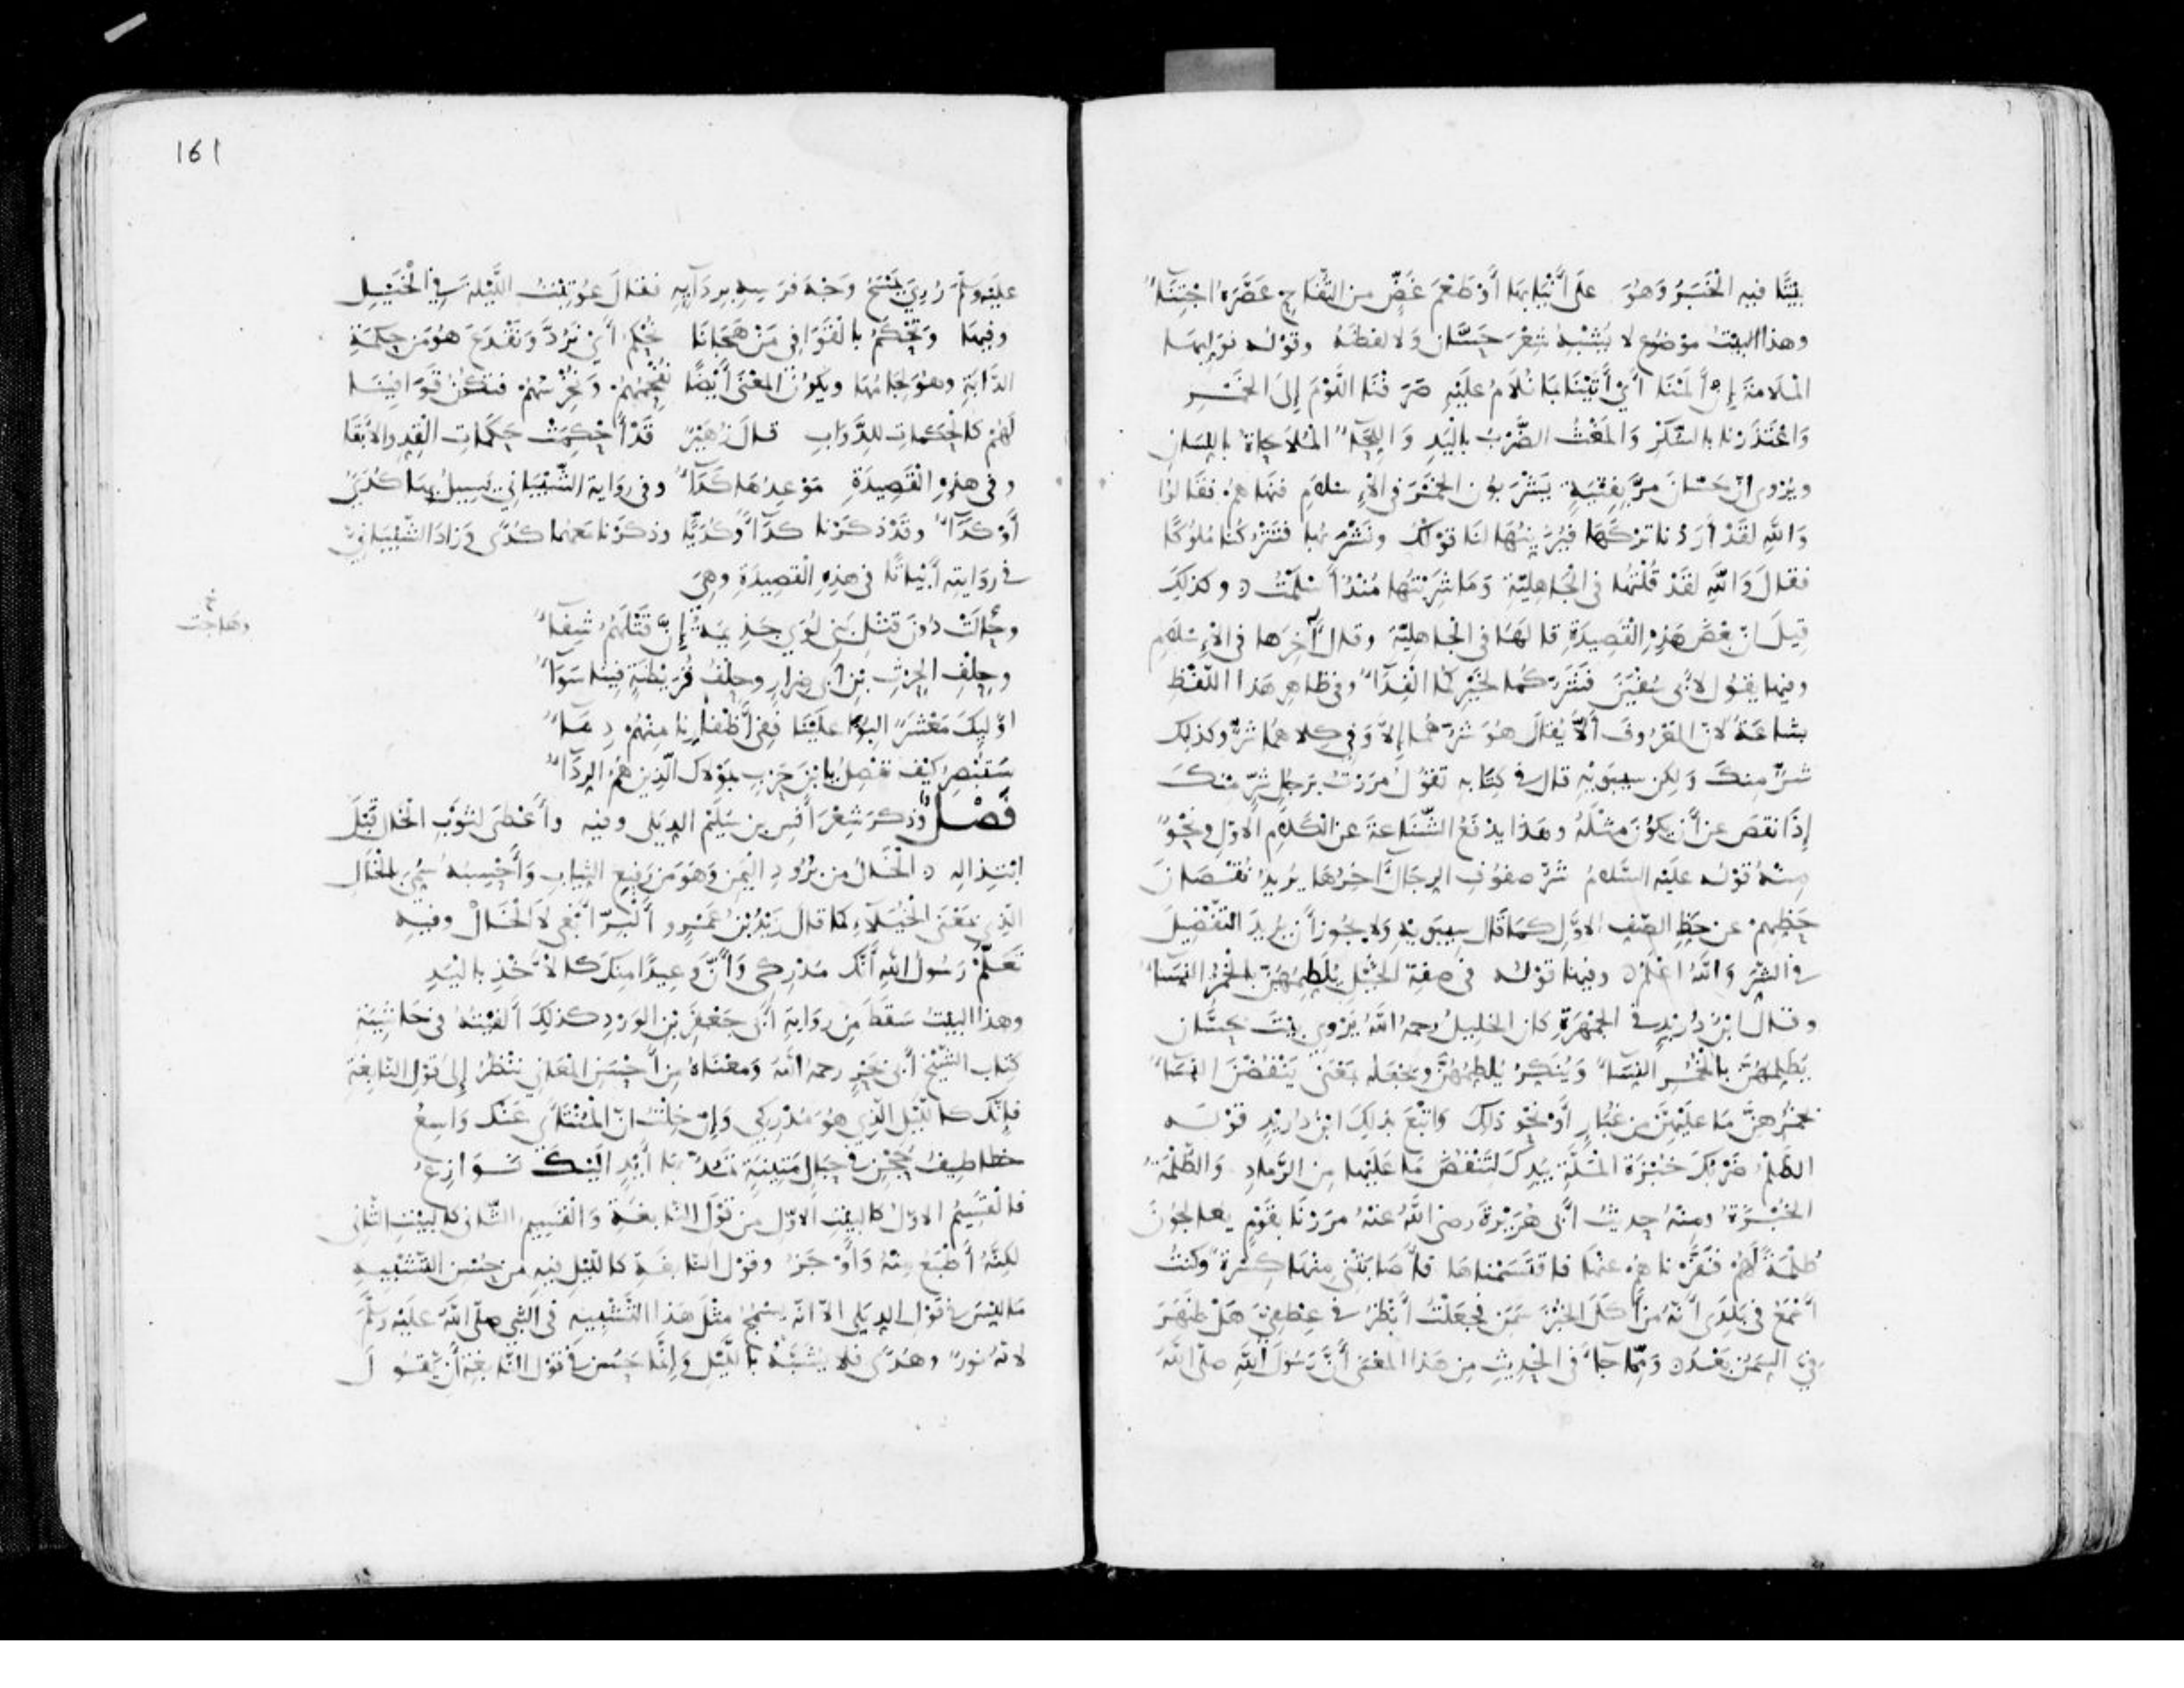 بيتًا فيه الخبر وهو على أنيابها أو طعم غض من التفاح عصره اجتنآء
وهذا البيت موضوع لا يشبه شعر حسّان ولا لفظه وقوله نوليها
الملامة إن ألمنا أي أتينا بما نلام عليه صرفنا اللوم إلى الخمر
واعتذرنا بالسكر والمغث الضرب باليد واللحآء الملاحاة باللسان
ويروى أنّ حسّان مرّ بفتية يشربون الخمر في الإسلام فنهاهم فقالوا
والله لقد أردنا تركها فيزينها لنا قولك ونشربها فتتركنا ملوكًا
فقال والله لقد قلتها في الجاهلية وما شربتها منذ أسلمت وكذلك
قيل انّ بعض هذه القصيدة قالها في الجاهلية وقال آخرها في الإسلام
وفيها يقول لأبي سفين فشرّكما لخيركما الفدآء وفي ظاهر هذا اللفظ
بشاعة لانّ المعروف ألّا يقال هو شرهما إلا وفي كلاهما شرّ وكذلك
شرّ منك ولكن سيبويه قال في كتابه تقول مررت برجل شرّ منك
إذا نقص عن أن يكون مثله وهذا يدفع الشناعة عن الكلام الاول ونحو
منه قوله عليه السلام شرّ صفوف الرجال آخرها يريد نقصان
حظهم عن حظ الصف الاوّل كما قال سيبويه ولا يجوز أن يريد التفضيل
في الشر والله اعلم وفيها قوله في صفة الخيل يلطمهن بالخمر النسآء
وقال ابن دريد في الجمهرة كان الخليل رحمه الله يروي بيت حسّان
يطلمهنّ بالخمر النسآء وينكر يلطمهنّ ويجعله بمعنى ينفض النسآء
بخمرهنّ ما عليهنّ من غبار أو نحو ذلك واتبع بذلك ابن دريد قوله
الطلم ضربك خبزة الملة بيدك لتنفض ما عليها من الرماد والطلمة
الخبزة ومنه حديث أبي هريرة رضي الله عنه مررنا بقوم يعالجون
طلمة لهم فنفرناهم عنها فاقتسمناها فأصابتني منها كسرة وكنت
أسمع في بلدي أنه من أكل الخبز سمن فجعلت أنظر في عطفي هل ظهر
فيّ السمن بعد وممّا جاء في الحديث من هذا المعنى أنّ رسول الله صلى الله
161
عليه وسلم رُؤي يمسح وجه فرسه بردآيه فقال عوتبت الليلة في الخيل
وفيها ونحكم بالقوافي من هجانا نحكم أي نردّ ونقدع هو من حكمة
الدّابة وهو لجامها ويكون المعنى أيضًا نفحمهم ونخرسهم فتكون قوافينا
لهم كالحكمات للدّواب قال زهير قد أحكمت حكمات القد والأبقا
وفي هذه القصيدة موعدها كدآء وفي رواية الشيباني يسيل بها كديّ
أو كدآء وقد ذكرنا كدآء وكديًّا وذكرنا معهما كدًى وزاد الشيباني
في روايته أبياتًا في هذه القصيدة وهي
خ
وهاجت
وجالت دون قتل بني لؤي جذيمة إنّ قتلهم شفآء
وحلف الحرث بن أبي ضرار وحلف قريظة فينا سوآء
اوليك معشر البوا علينا ففي أظفارنا منهم دمآء
ستبصر كيف تفصل يابن حرب بمولاك الّذين هم الردآء
فصل وذكر شعر أنس بن سليم الديلي وفيه وأعطى لثوب الخال قبل
ابتذاله الخال من برود اليمن وهو من رفيع الثياب وأحسبه سمّي بالخال
الّذي بمعنى الخيلاء كما قال زيد بن عمرو ألبرّ أبغي لا الخال وفيه
تعلّم رسول الله أنّك مدركي وأنّ وعيدًا منك كالأخذ باليد
وهذا البيت سقط من رواية أبي جعفر بن الورد كذلك ألفيته في حاشية
كتاب الشيخ أبي بحر رحمه الله ومعناه من أحسن المعاني تنظر إلى قول النابغة
فإنّك كالليل الّذي هو مدركي وإن خلت انّ المنتأى عنك واسع
خطاطيف حجن في حبال متينة تمدّ بها أيد اليك نوازع
فالقسيم الاوّل كالبيت الاوّل من قول النابغة والقسيم الثاني كالبيت الثاني
لكنّه أطبع منه وأوجز وقول النابغة كالليل فيه من حسن التشبيه
ما ليس في قول الديلي الّا انّه يسمج مثل هذا التشبيه في النبي صلى الله عليه وسلم
لانّه نور وهدى فلا يشبّه بالليل وإنّما حسن في قول النابغة أن يقول